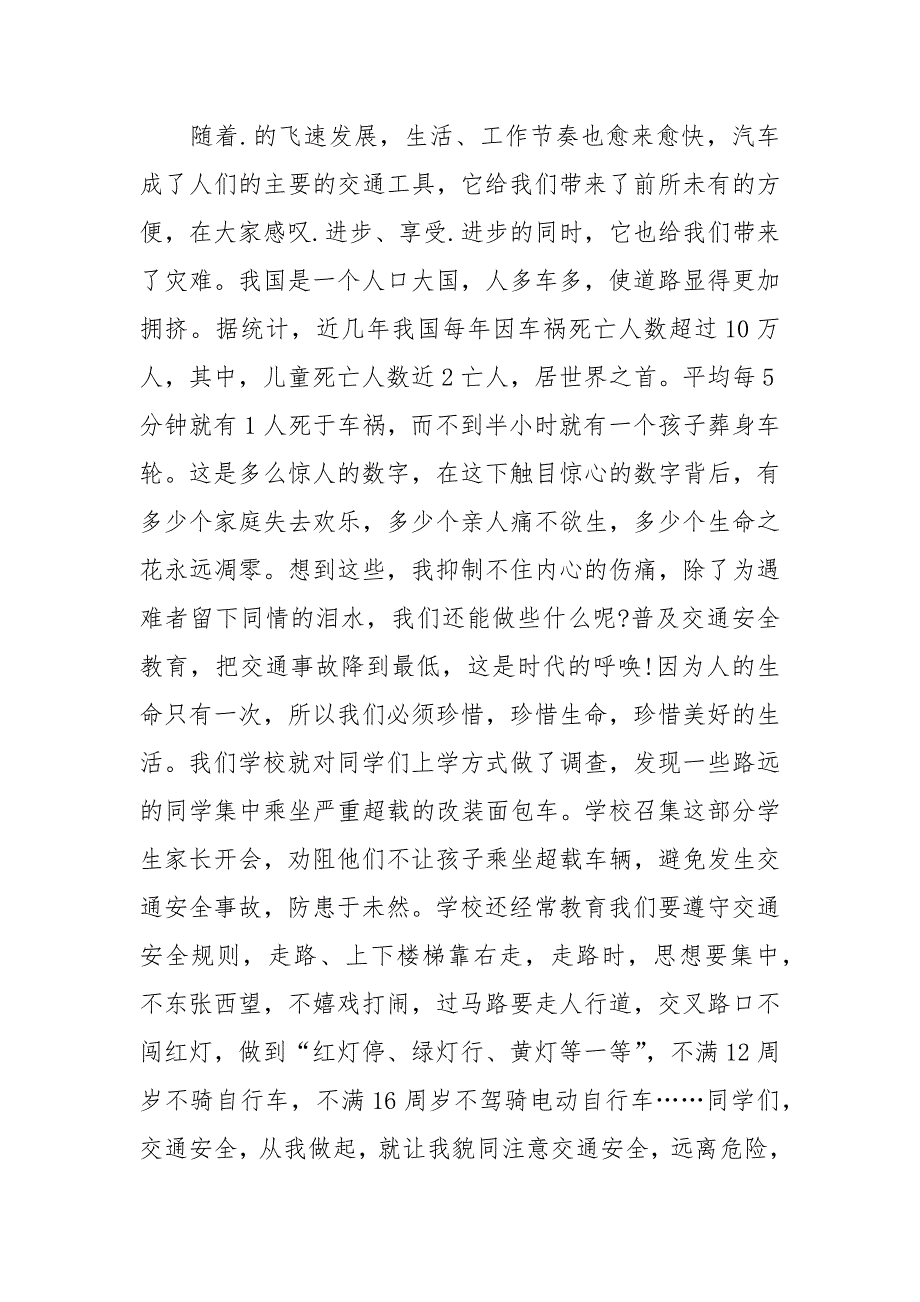 随着.的飞速发展，生活、工作节奏也愈来愈快，汽车
成了人们的主要的交通工具，它给我们带来了前所未有的方
便，在大家感叹.进步、享受.进步的同时，它也给我们带来
了灾难。我国是一个人口大国，人多车多，使道路显得更加
拥挤。据统计，近几年我国每年因车祸死亡人数超过 10 万
人，其中，儿童死亡人数近 2 亡人，居世界之首。平均每 5
分钟就有 1 人死于车祸，而不到半小时就有一个孩子葬身车
轮。这是多么惊人的数字，在这下触目惊心的数字背后，有
多少个家庭失去欢乐，多少个亲人痛不欲生，多少个生命之
花永远凋零。想到这些，我抑制不住内心的伤痛，除了为遇
难者留下同情的泪水，我们还能做些什么呢?普及交通安全
教育，把交通事故降到最低，这是时代的呼唤!因为人的生
命只有一次，所以我们必须珍惜，珍惜生命，珍惜美好的生
活。我们学校就对同学们上学方式做了调查，发现一些路远
的同学集中乘坐严重超载的改装面包车。学校召集这部分学
生家长开会，劝阻他们不让孩子乘坐超载车辆，避免发生交
通安全事故，防患于未然。学校还经常教育我们要遵守交通
安全规则，走路、上下楼梯靠右走，走路时，思想要集中，
不东张西望，不嬉戏打闹，过马路要走人行道，交叉路口不
闯红灯，做到“红灯停、绿灯行、黄灯等一等”，不满 12 周
岁不骑自行车，不满 16 周岁不驾骑电动自行车……同学们，
交通安全，从我做起，就让我貌同注意交通安全，远离危险，